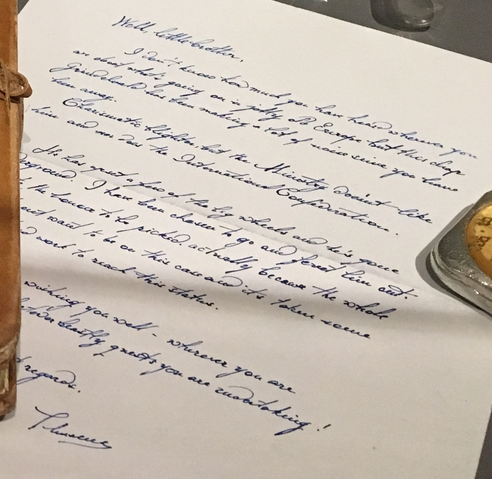 Well, little brother,
I don't know how much you have heard wherever you
on about what's going on in jolly old Europe but this chap
Grindelwald has been making a lot of noise since you have
been away.
Charismatic blighter but the Ministry doesn't like
him and nor does the International Confederation.
He has upset a few of the big wheels and it's gone
I have been chosen to go and ferret him out -
honour to be picked actually because the whole
want to be on this case and it's taken some
work to reach this status.
wishing you well - wherever you are
beastly quests you are undertaking!
regards,
Theseus